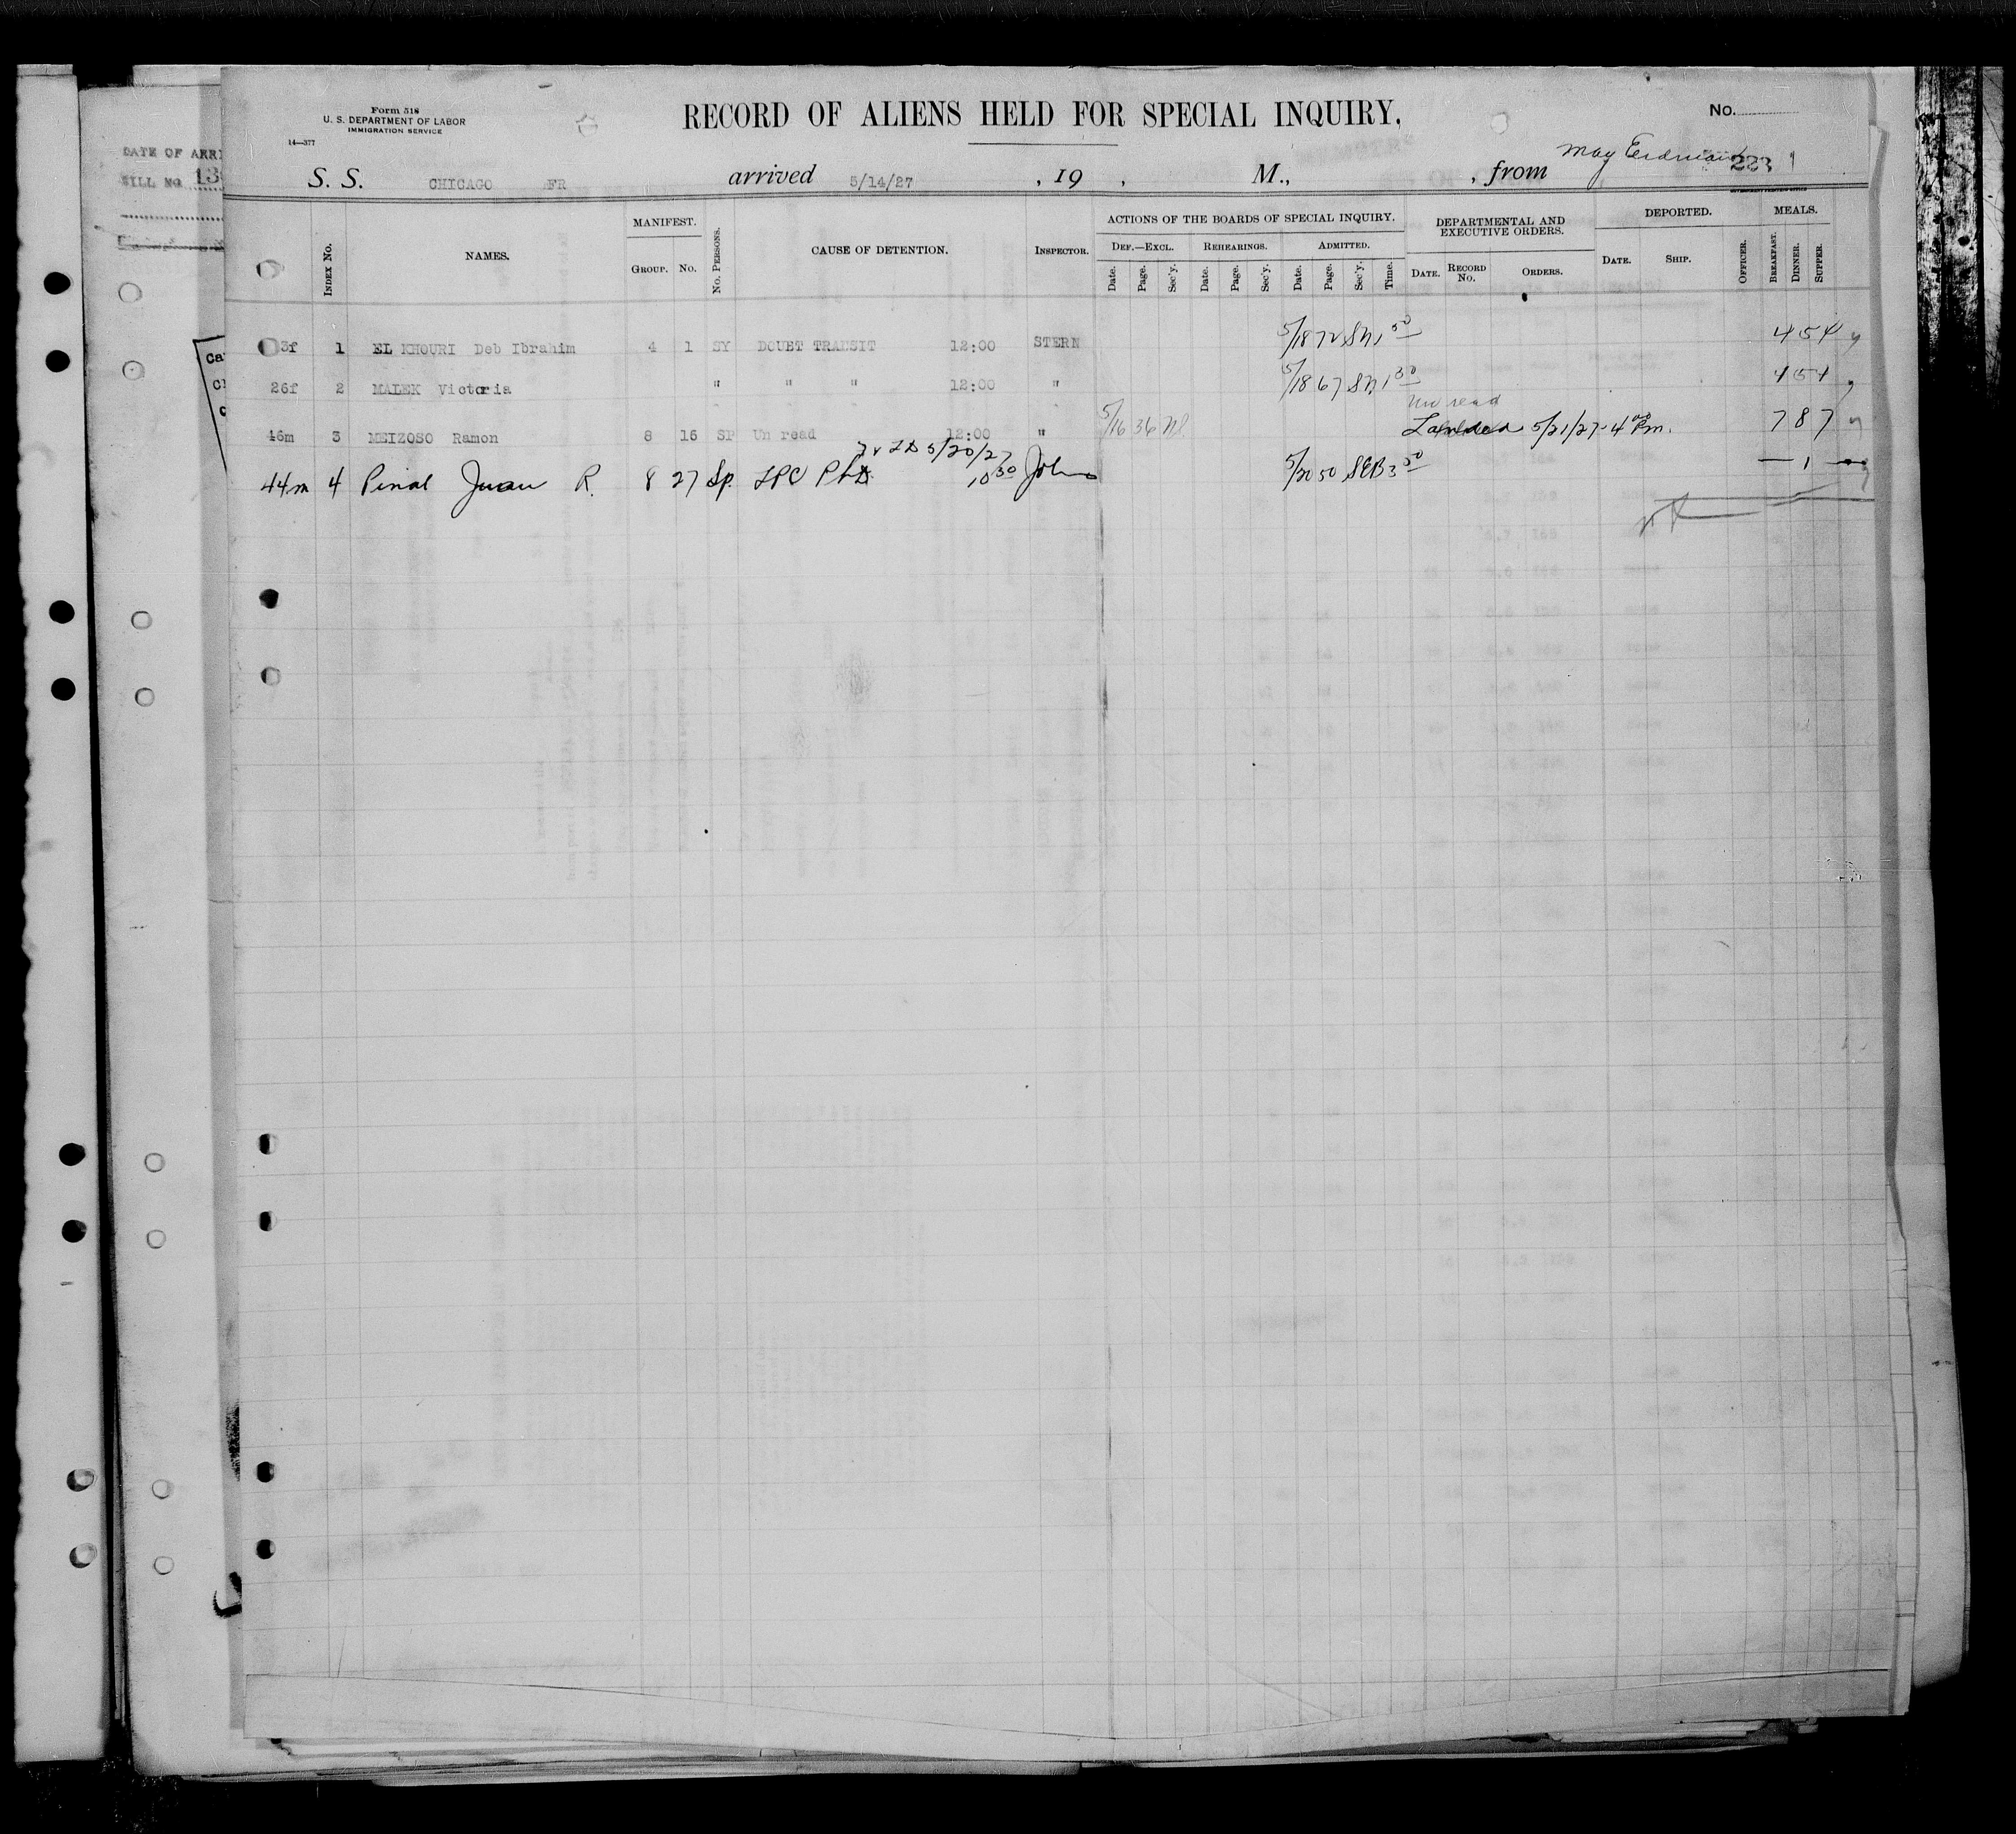 DATE OF ARRI
BILL NO. 13
Form 518
U. S. DEPARTMENT OF LABOR
IMMIGRATION SERVICE
14—377
RECORD OF ALIENS HELD FOR SPECIAL INQUIRY.
No.
S. S. CHICAGO FR arrived 5/14/27 , 19 , M., , from May 223
INDEX No. NAMES. MANIFEST. GROUP. No. No. PERSONS. CAUSE OF DETENTION. INSPECTOR. ACTIONS OF THE BOARDS OF SPECIAL INQUIRY. DEF.—EXCL. Date. Page. Sec'y. REHEARINGS. Date. Page. Sec'y. ADMITTED. Date. Page. Sec'y. Time. DEPARTMENTAL AND EXECUTIVE ORDERS. DATE. RECORD No. ORDERS. DEPORTED. DATE. SHIP. OFFICER. MEALS. BREAKFAST. DINNER. SUPPER.
3f 1 EL KHOURI Deb Ibrahim 4 1 SY DOUBT TRANSIT 12:00 STERN 5/18 72 SN 1 50 4 5 4
26f 2 MALEK Victoria " " " 12:00 " 5/18 67 SN 1 30 4 5 4
Un read
46m 3 MEIZOSO Ramon 8 16 SP Un read 12:00 " 5/16 36 Landed 5/21/27 - 4 00 Pm. 7 8 7
5/20/27
44m 4 Pinal Juan R. 8 27 Sp. LPC 10 30 5/20 50 SEB 3 50 — 1 —